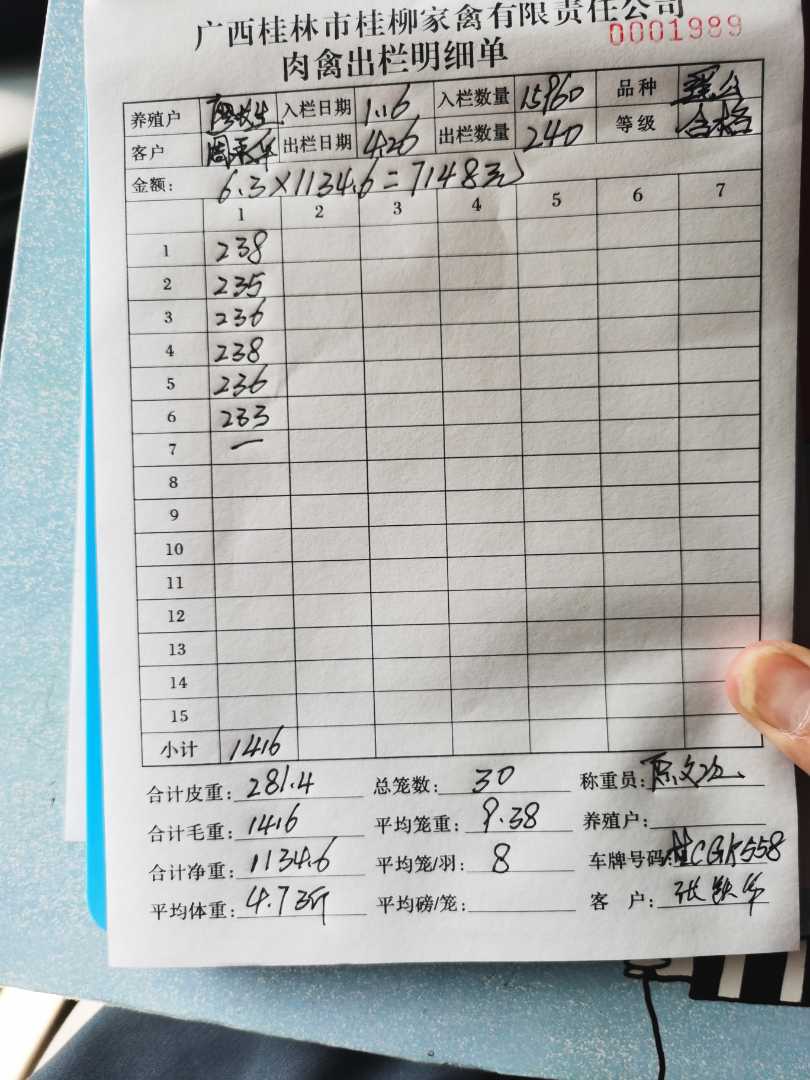 广西桂林市桂柳家禽有限责任公司
0001989
肉禽出栏明细单
养殖户 入栏日期 1.16 入栏数量 15960 品种
客户 出栏日期 4.26 出栏数量 240 等级 合格
金额: 6.3×1134.6=7148元
1 2 3 4 5 6 7
1 238
2 235
3 236
4 238
5 236
6 233
7 一
8
9
10
11
12
13
14
15
小计 1416
合计皮重: 281.4 总笼数: 30 称重员:
合计毛重: 1416 平均笼重: 9.38 养殖户:
合计净重: 1134.6 平均笼/羽: 8 车牌号码: 桂CGK558
平均体重: 4.73斤 平均磅/笼: 客户: